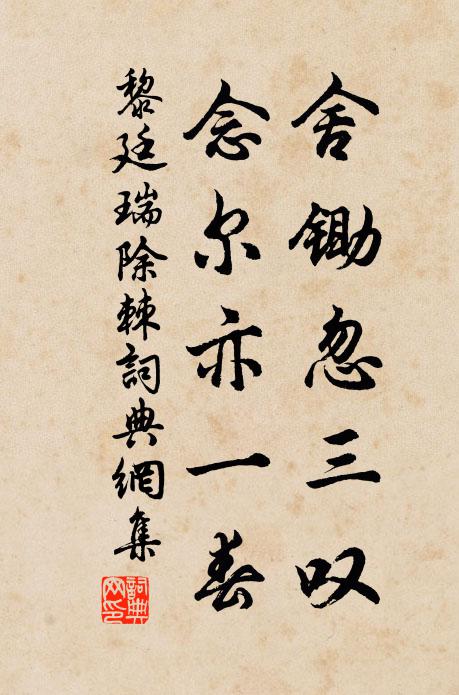 舍锄忽三叹
念尔亦一春
黎廷瑞除棘詞典網集
詞典網印